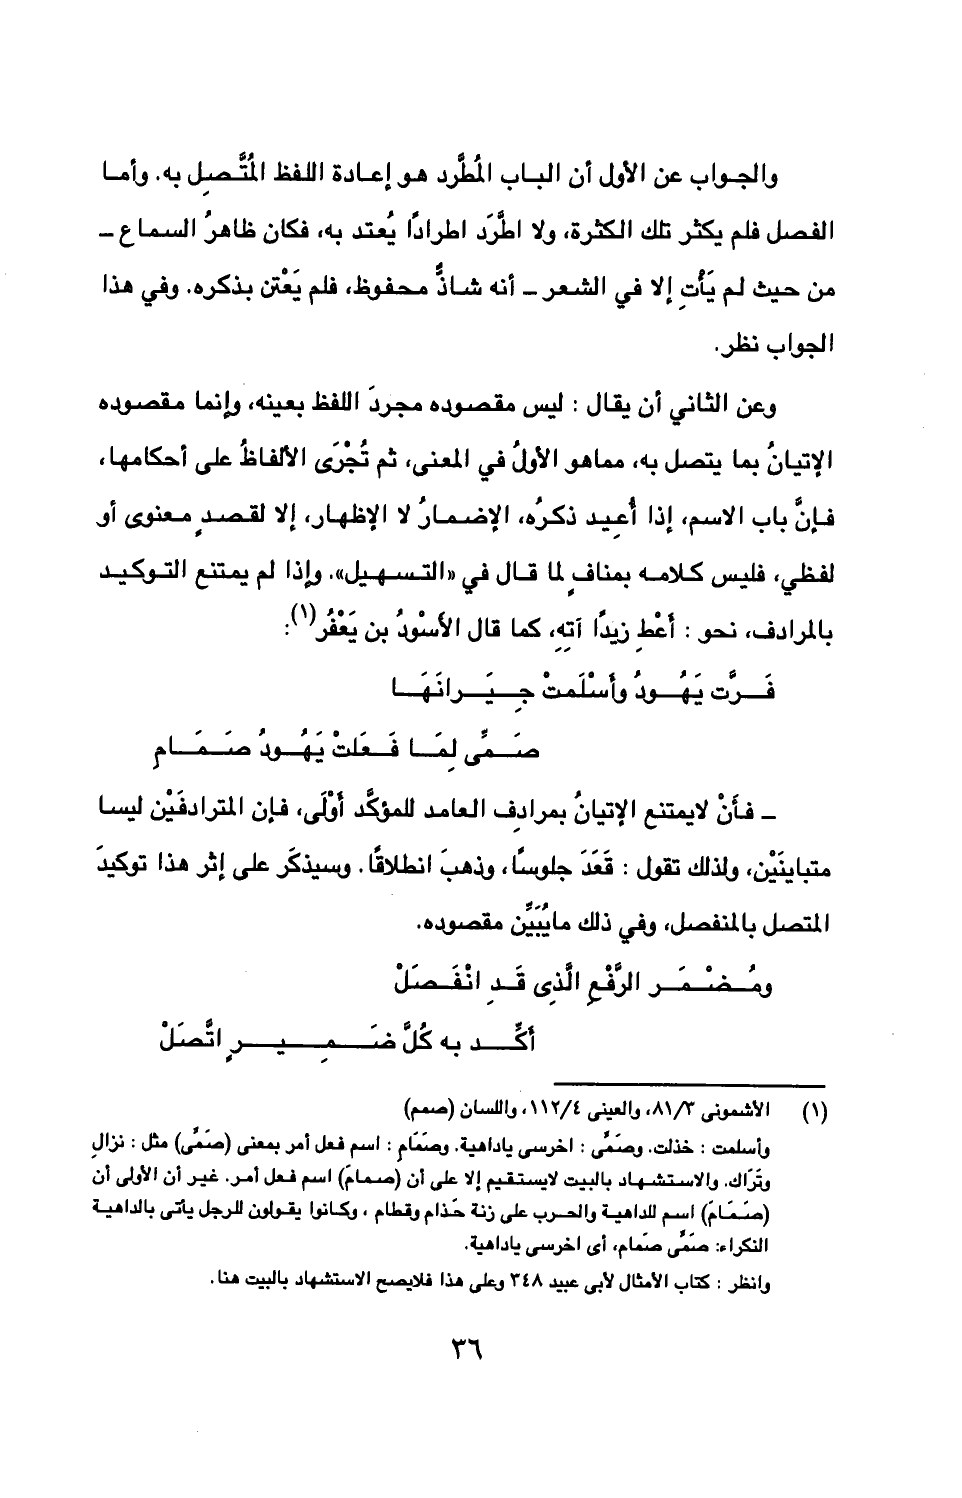 والجواب عن الأول أن الباب المُطَّرد هو إعادة اللفظ المُتَّصِل به. وأما
الفصل فلم يكثر تلك الكثرة، ولا اطَّرَد اطرادًا يُعتد به، فكان ظاهرُ السماع ـ
من حيث لم يَأْتِ إلا في الشعر ـ أنه شاذٌّ محفوظ، فلم يَعْتن بذكره. وفي هذا
الجواب نظر.
وعن الثاني أن يقال : ليس مقصوده مجردَ اللفظ بعينه، وإنما مقصوده
الإتيانُ بما يتصل به، مماهو الأولُ في المعنى، ثم تُجْرَى الألفاظُ على أحكامها،
فإنَّ باب الاسم، إذا أُعِيد ذكرُه، الإضمارُ لا الإظهار، إلا لقصدٍ معنوى أو
لفظي، فليس كلامه بمنافٍ لما قال في «التسهيل». وإذا لم يمتنع التوكيد
بالمرادف، نحو : أَعْطِ زيدًا آتِهِ، كما قال الأسْودُ بن يَعْفُر(١):
فَرَّت يَهُودُ وأَسْلَمتْ جِيَرانَهَا
صَمِّى لِمَا فَعَلتْ يَهُودُ صَمَامِ
ـ فأَنْ لايمتنع الإتيانُ بمرادِف العامد للمؤكَّد أَوْلَى، فإن المترادفَيْن ليسا
متباينَيْن، ولذلك تقول : قَعَدَ جلوسًا، وذهبَ انطلاقًا. وسيذكَر على إثر هذا توكيدَ
المتصل بالمنفصل، وفي ذلك مايُبَيِّن مقصوده.
ومُضْمَر الرَّفْعِ الَّذِى قَدِ انْفَصَلْ
أكِّد به كُلَّ ضَمِيرٍ اتَّصَلْ
(١) الأشمونى ٨١/٣، والعينى ١١٢/٤، واللسان (صمم)
وأسلمت : خذلت. وصَمِّى : اخرسى ياداهية. وصَمَامِ : اسم فعل أمر بمعنى (صَمِّى) مثل : نزالِ
وتَرَاك. والاستشهاد بالبيت لايستقيم إلا على أن (صمامَ) اسم فعل أمر. غير أن الأولى أن
(صَمَامَ) اسم للداهية والحرب على زنة حَذام وقطام ، وكانوا يقولون للرجل يأتى بالداهية
النكراء: صَمِّى صَمام، أى اخرسى ياداهية.
وانظر : كتاب الأمثال لأبى عبيد ٣٤٨ وعلى هذا فلايصح الاستشهاد بالبيت هنا.
٣٦